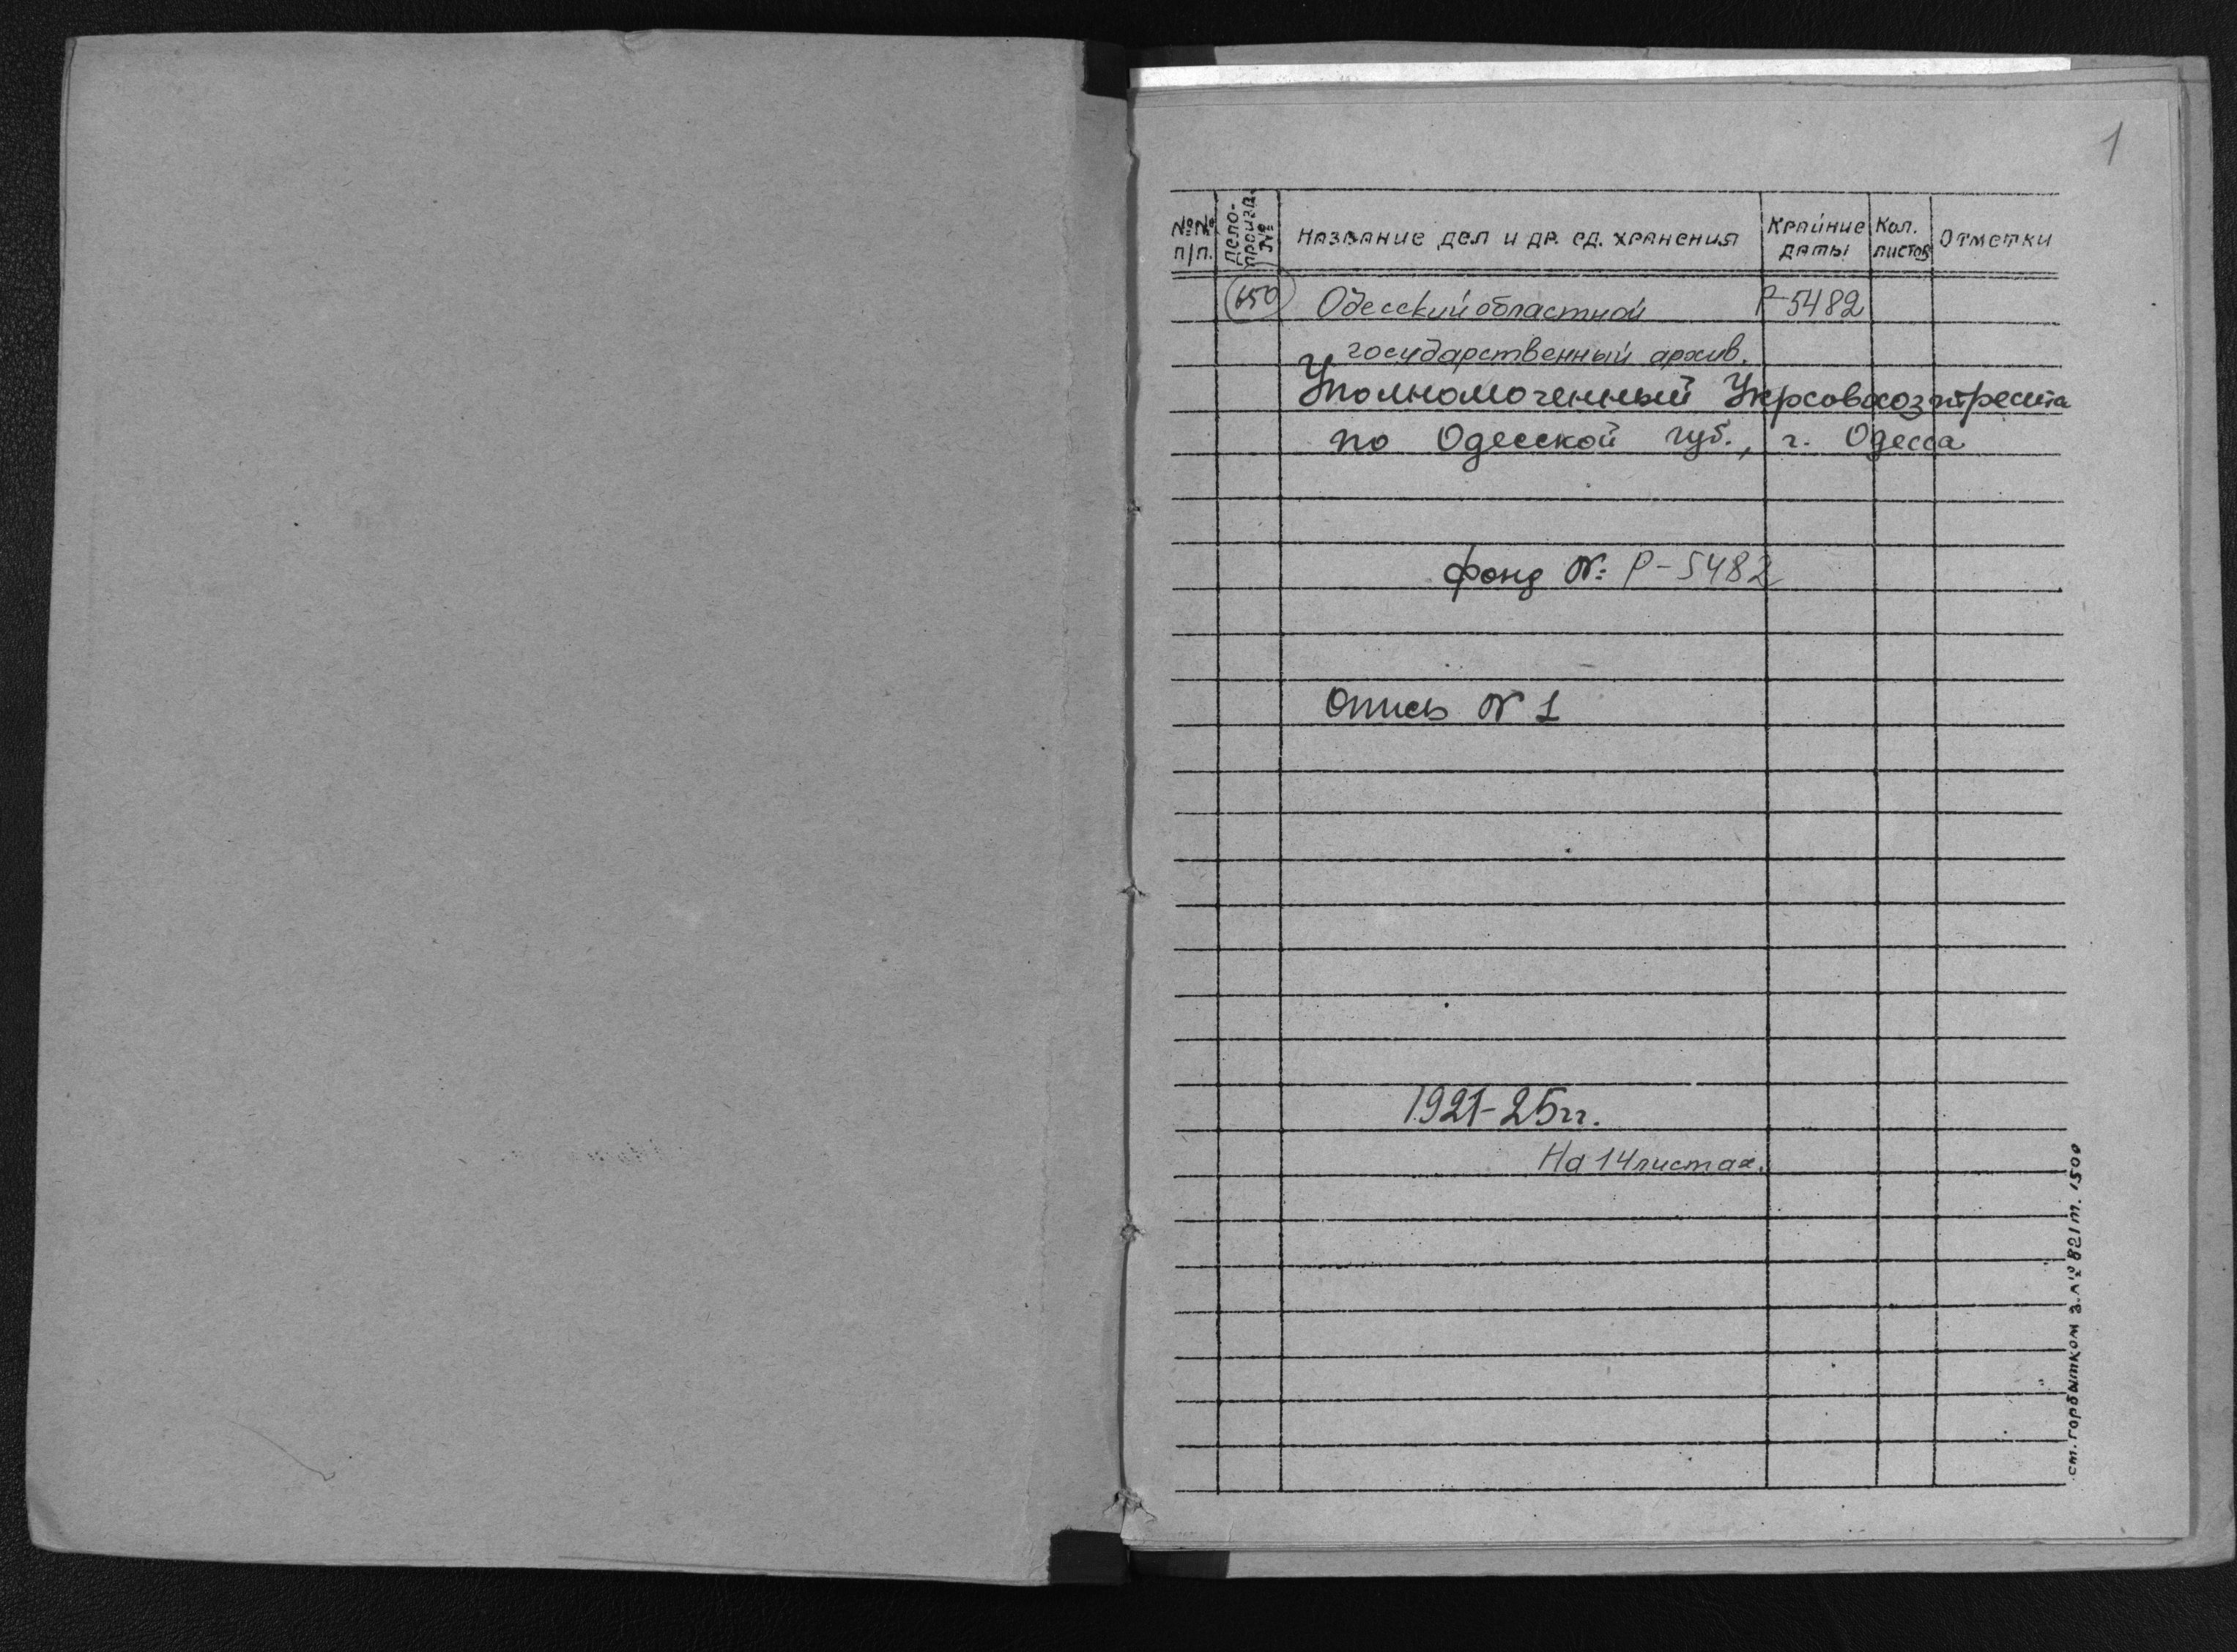 1
№№ п/п.
Дело-произв. №
Название дел и др. ед. хранения
Крайние даты
Кол. листов
Отметки
650 Одесский областной Р-5482
государственный архив.
Уполномоченный Укрсовхозтреста
по Одесской губ., г. Одесса
фонд №: Р-5482
Опись № 1
1921-25гг.
На 14 листах.
ст. горбытком з. №821 т. 1500